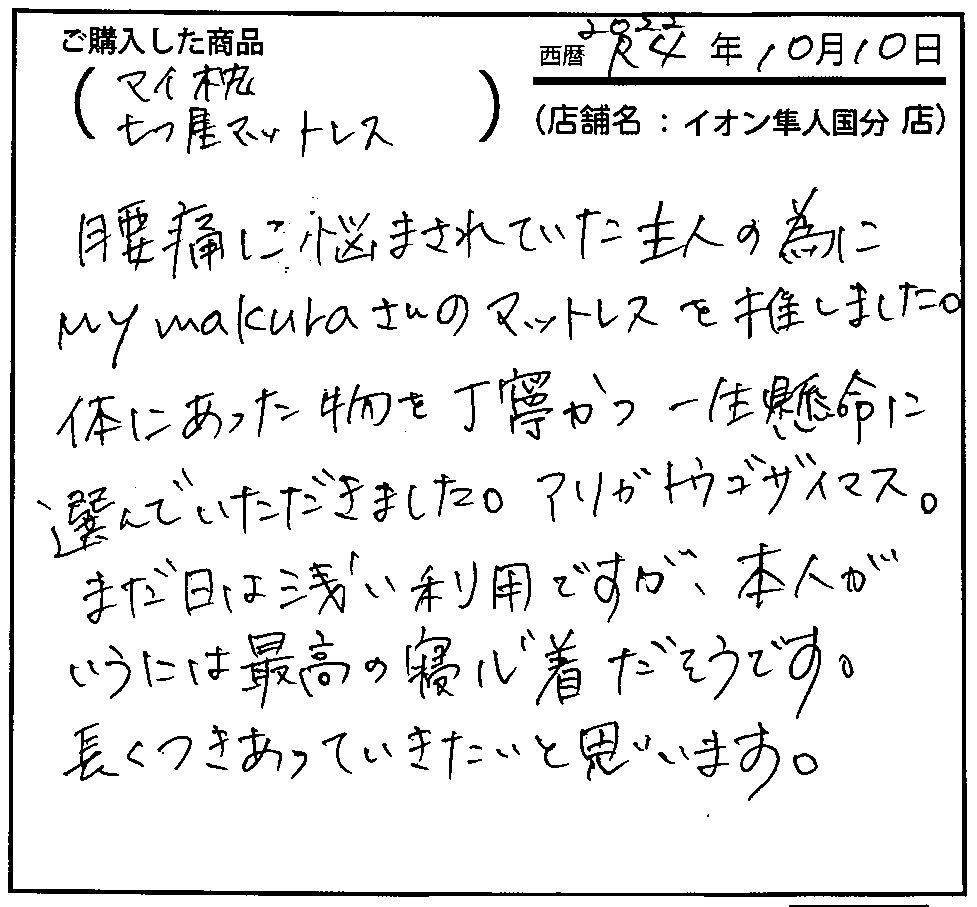 ご購入した商品
西暦 2022 R4年10月10日
(マイ枕
七つ星マットレス)
(店舗名：イオン隼人国分 店)
腰痛に悩まされていた主人の為に
My makuraさんのマットレスを推しました。
体にあった物を丁寧かつ一生懸命に
選んでいただきました。アリガトウゴザイマス。
まだ日は浅い利用ですが、本人が
いうには最高の寝心着だそうです。
長くつきあっていきたいと思います。